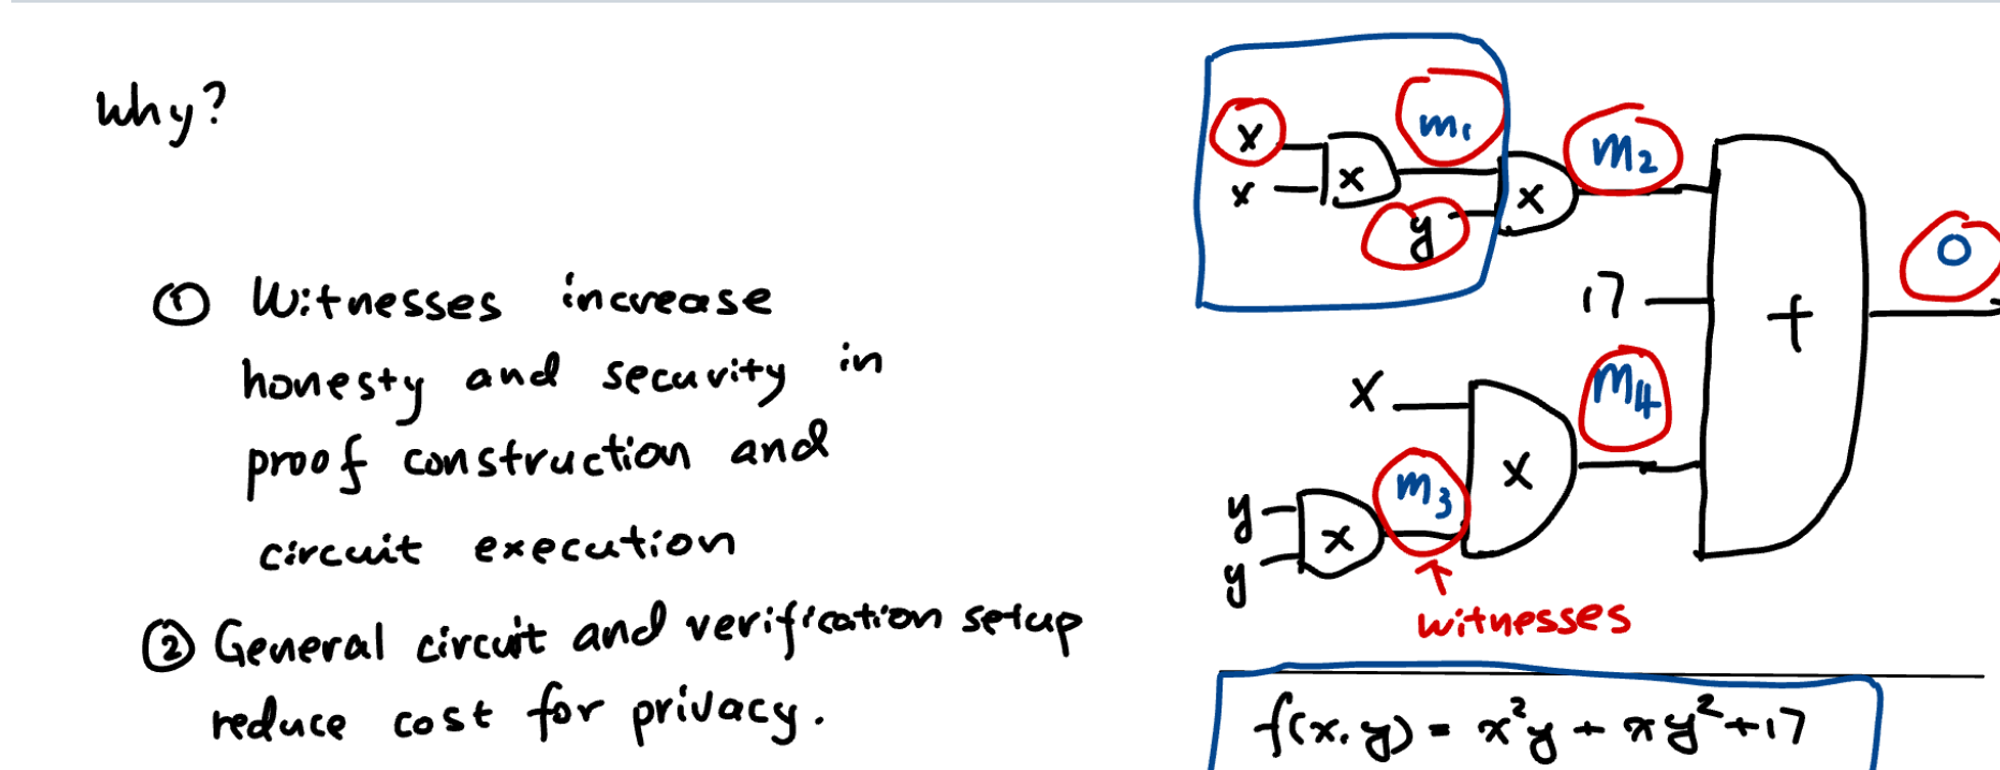 Why?
① Witnesses increase
honesty and security in
proof construction and
circuit execution
② General circuit and verification setup
reduce cost for privacy.
x
x
x
m₁
y
x
m₂
17
+
O
x
m₄
x
m₃
y
y
x
witnesses
f(x, y) = x²y + xy² + 17